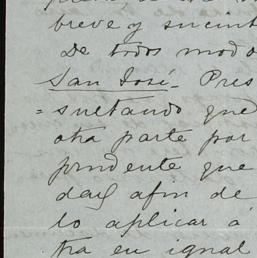 breve y sucint
De todos modo
San José. Pres
=sultando qued
otra parte por
prudente que
dad afin de
lo aplicar á
tra en igual